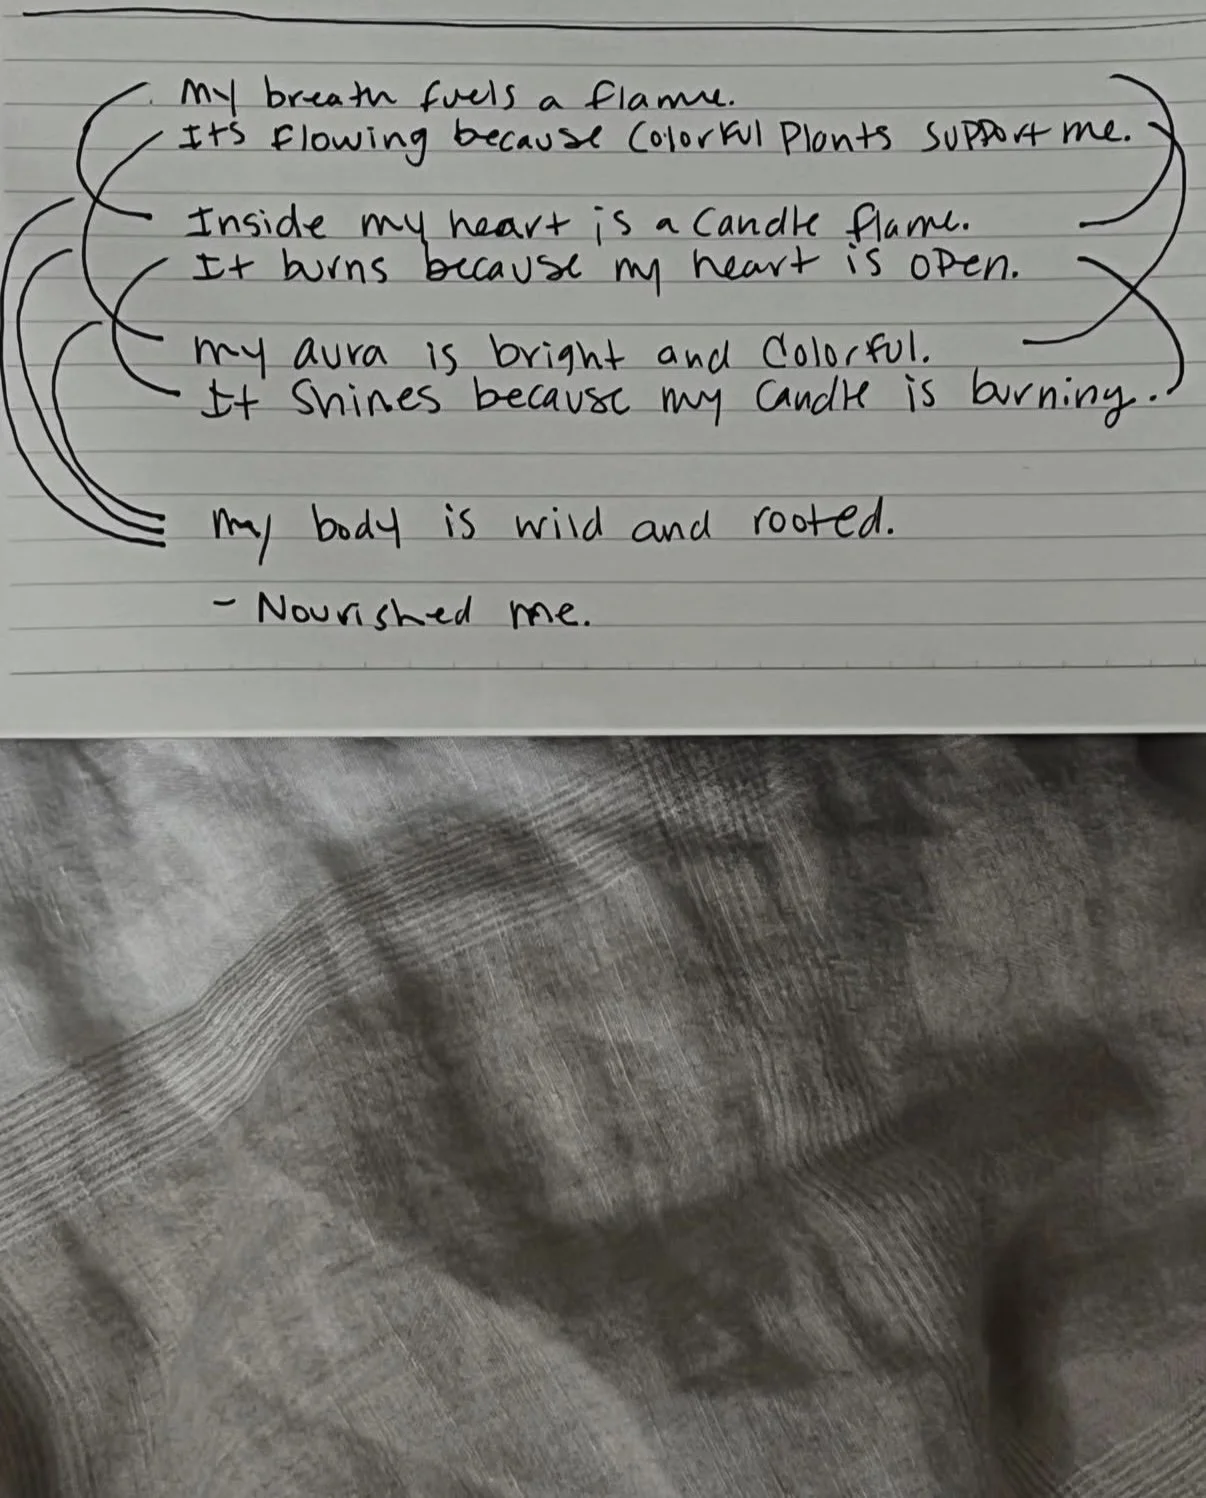 My breath fuels a flame.
Its flowing because colorful plants support me.
Inside my heart is a candle flame.
It burns because my heart is open.
My aura is bright and colorful.
It shines because my candle is burning.
My body is wild and rooted.
- Nourished me.